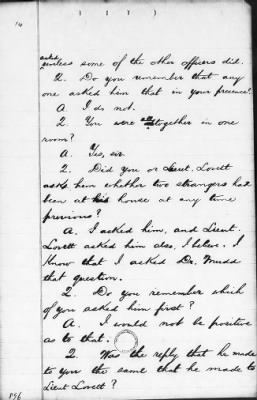 14
asked
unless some of the other officers did.
Q. Do you remember that any
one asked him that in your presence?
A. I do not.
Q. You were all together in one
room?
A. Yes, sir
Q. Did you or Lieut. Lovett
ask him whether two strangers had
been at his house at any time
previous?
A. I asked him, and Lieut.
Lovett asked him also, I believe. I
Know that I asked Dr. Mudd
that question.
Q. Do you remember which
of you asked him first?
A. I would not be positive
as to that.
Q. Was the reply that he made
to you the same that he made to
Lieut Lovett?